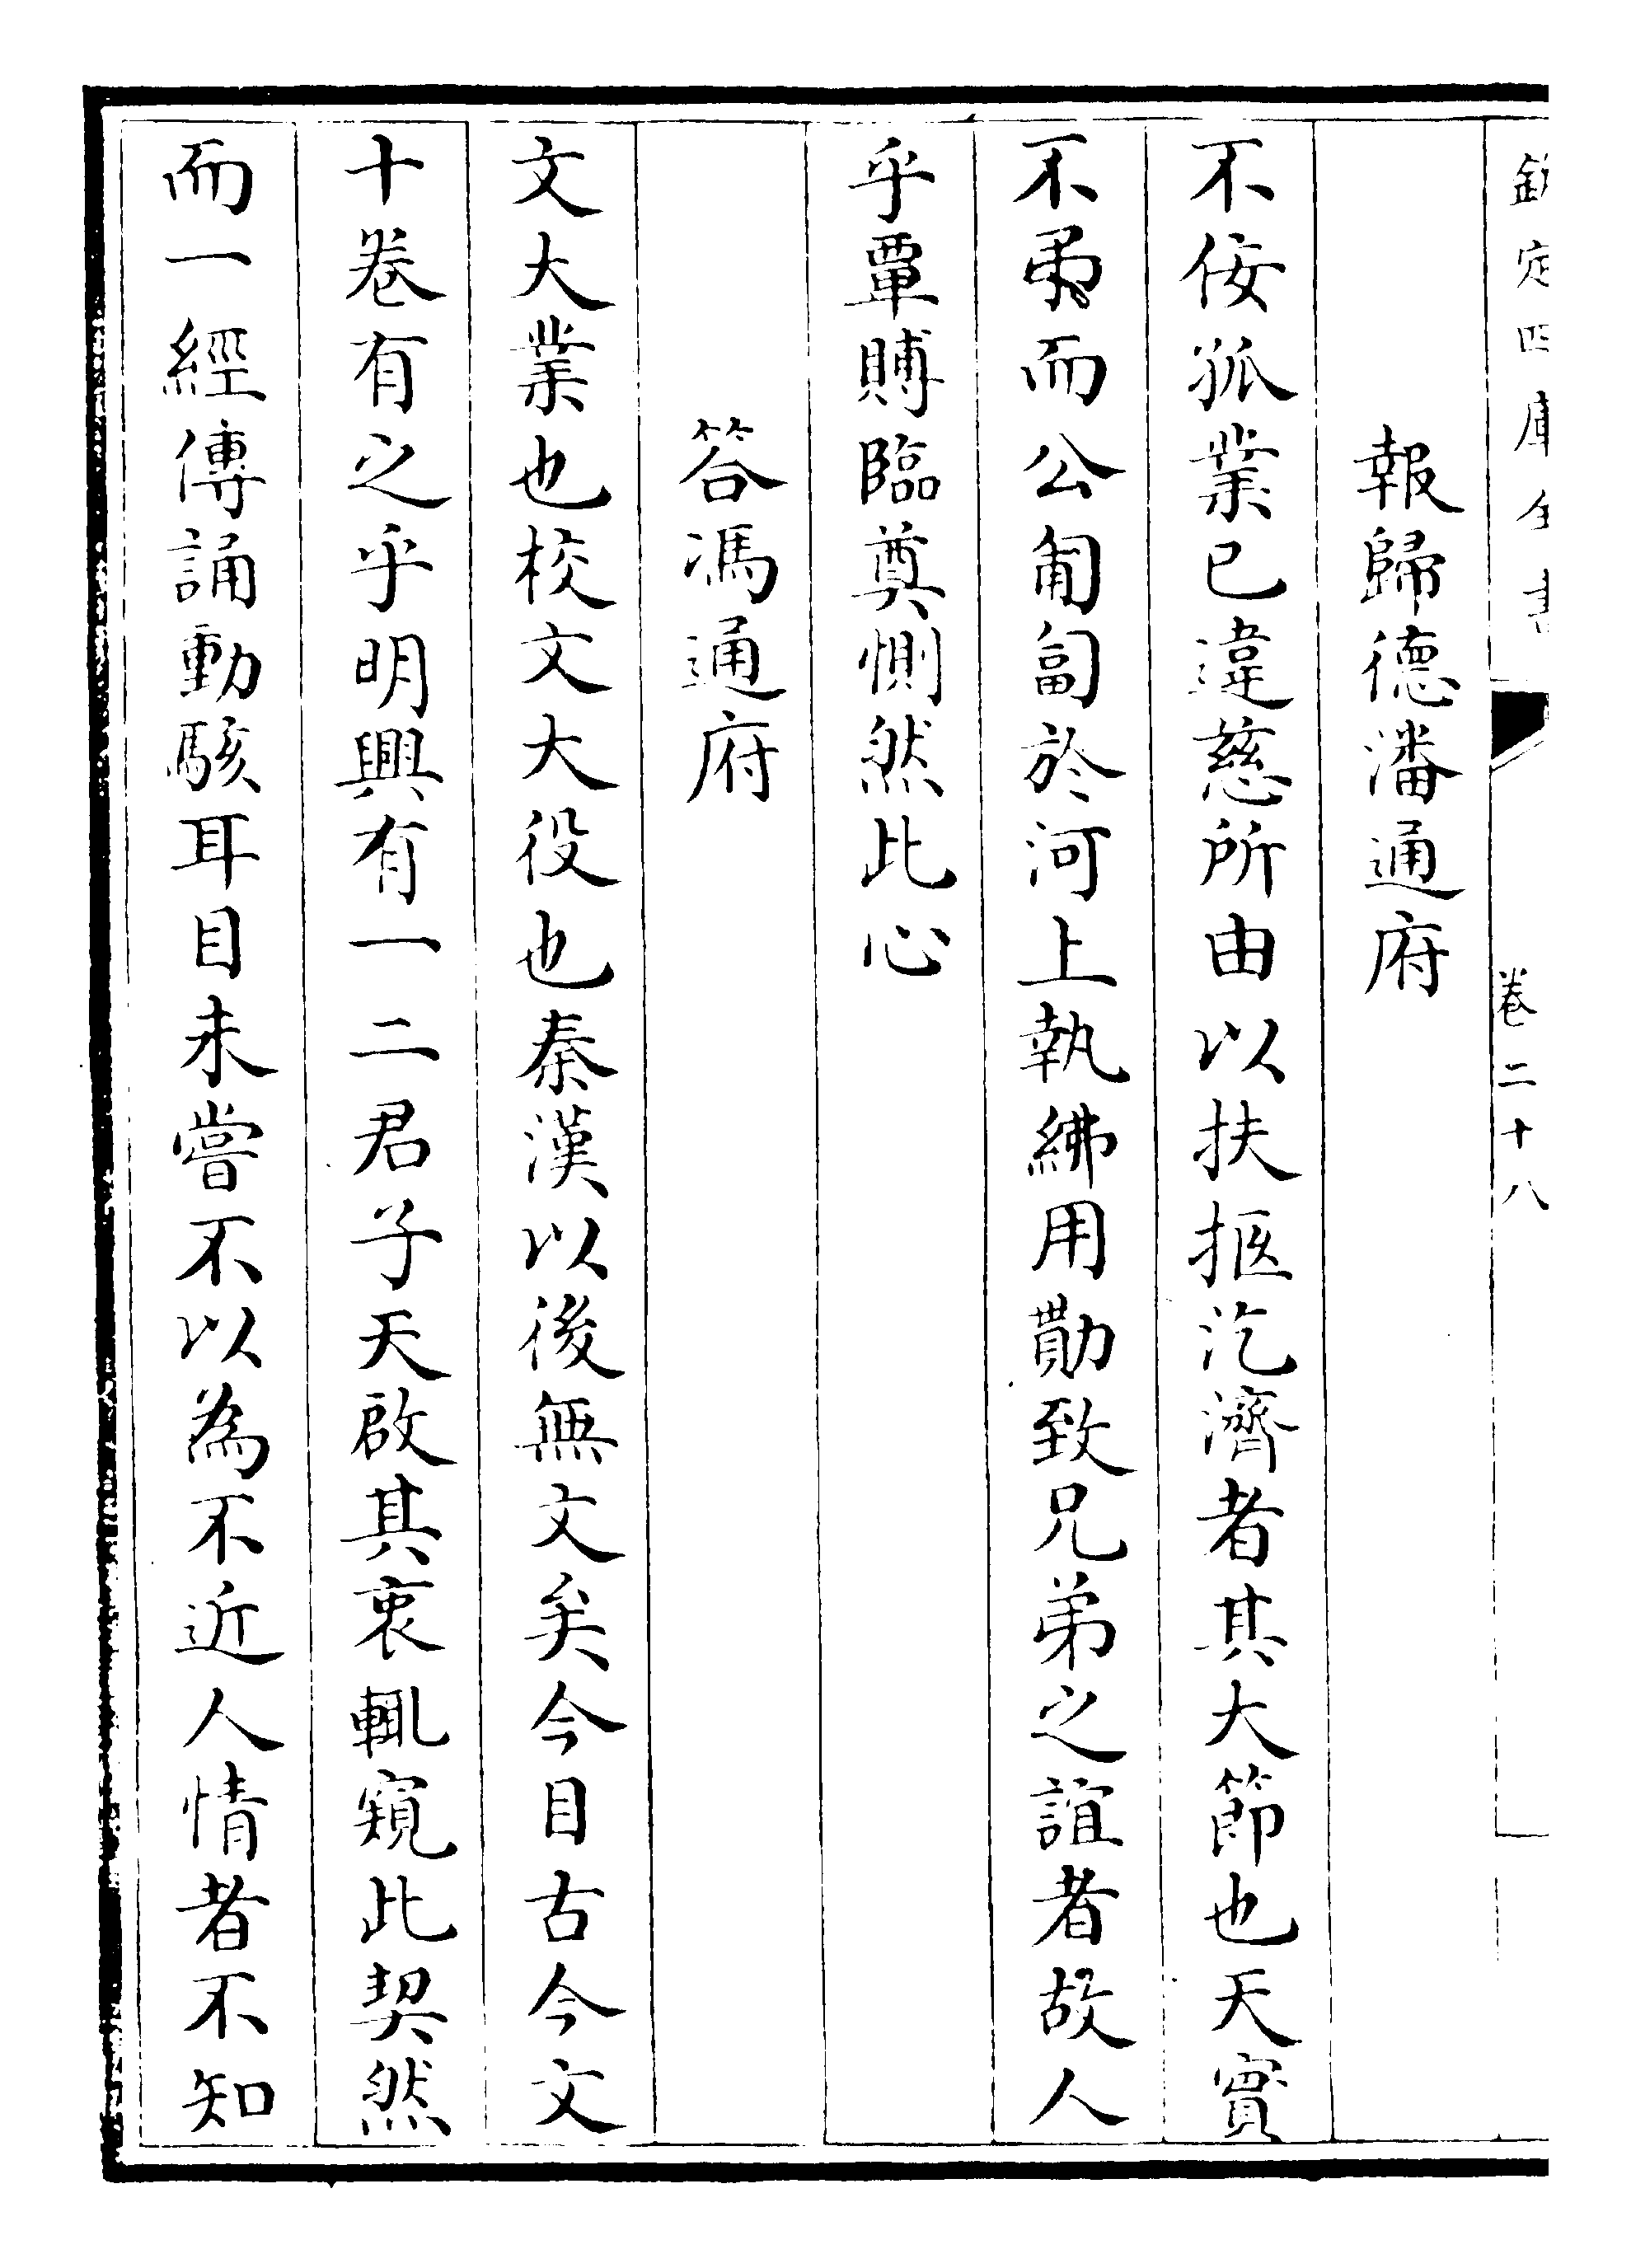 欽定四庫全書 卷二十八
報歸德潘通府
不佞孤業已違慈所由以扶抠汔濟者其大節也天實
不弔而公匍匐於河上執紼用勩致兄弟之誼者故人
乎覃賻臨奠惻然此心
答馮通府
文大業也校文大役也秦漢以後無文矣今目古今文
十卷有之乎明興有一二君子天啟其衷輒窺此契然
而一經傳誦動駭耳目未嘗不以為不近人情者不知